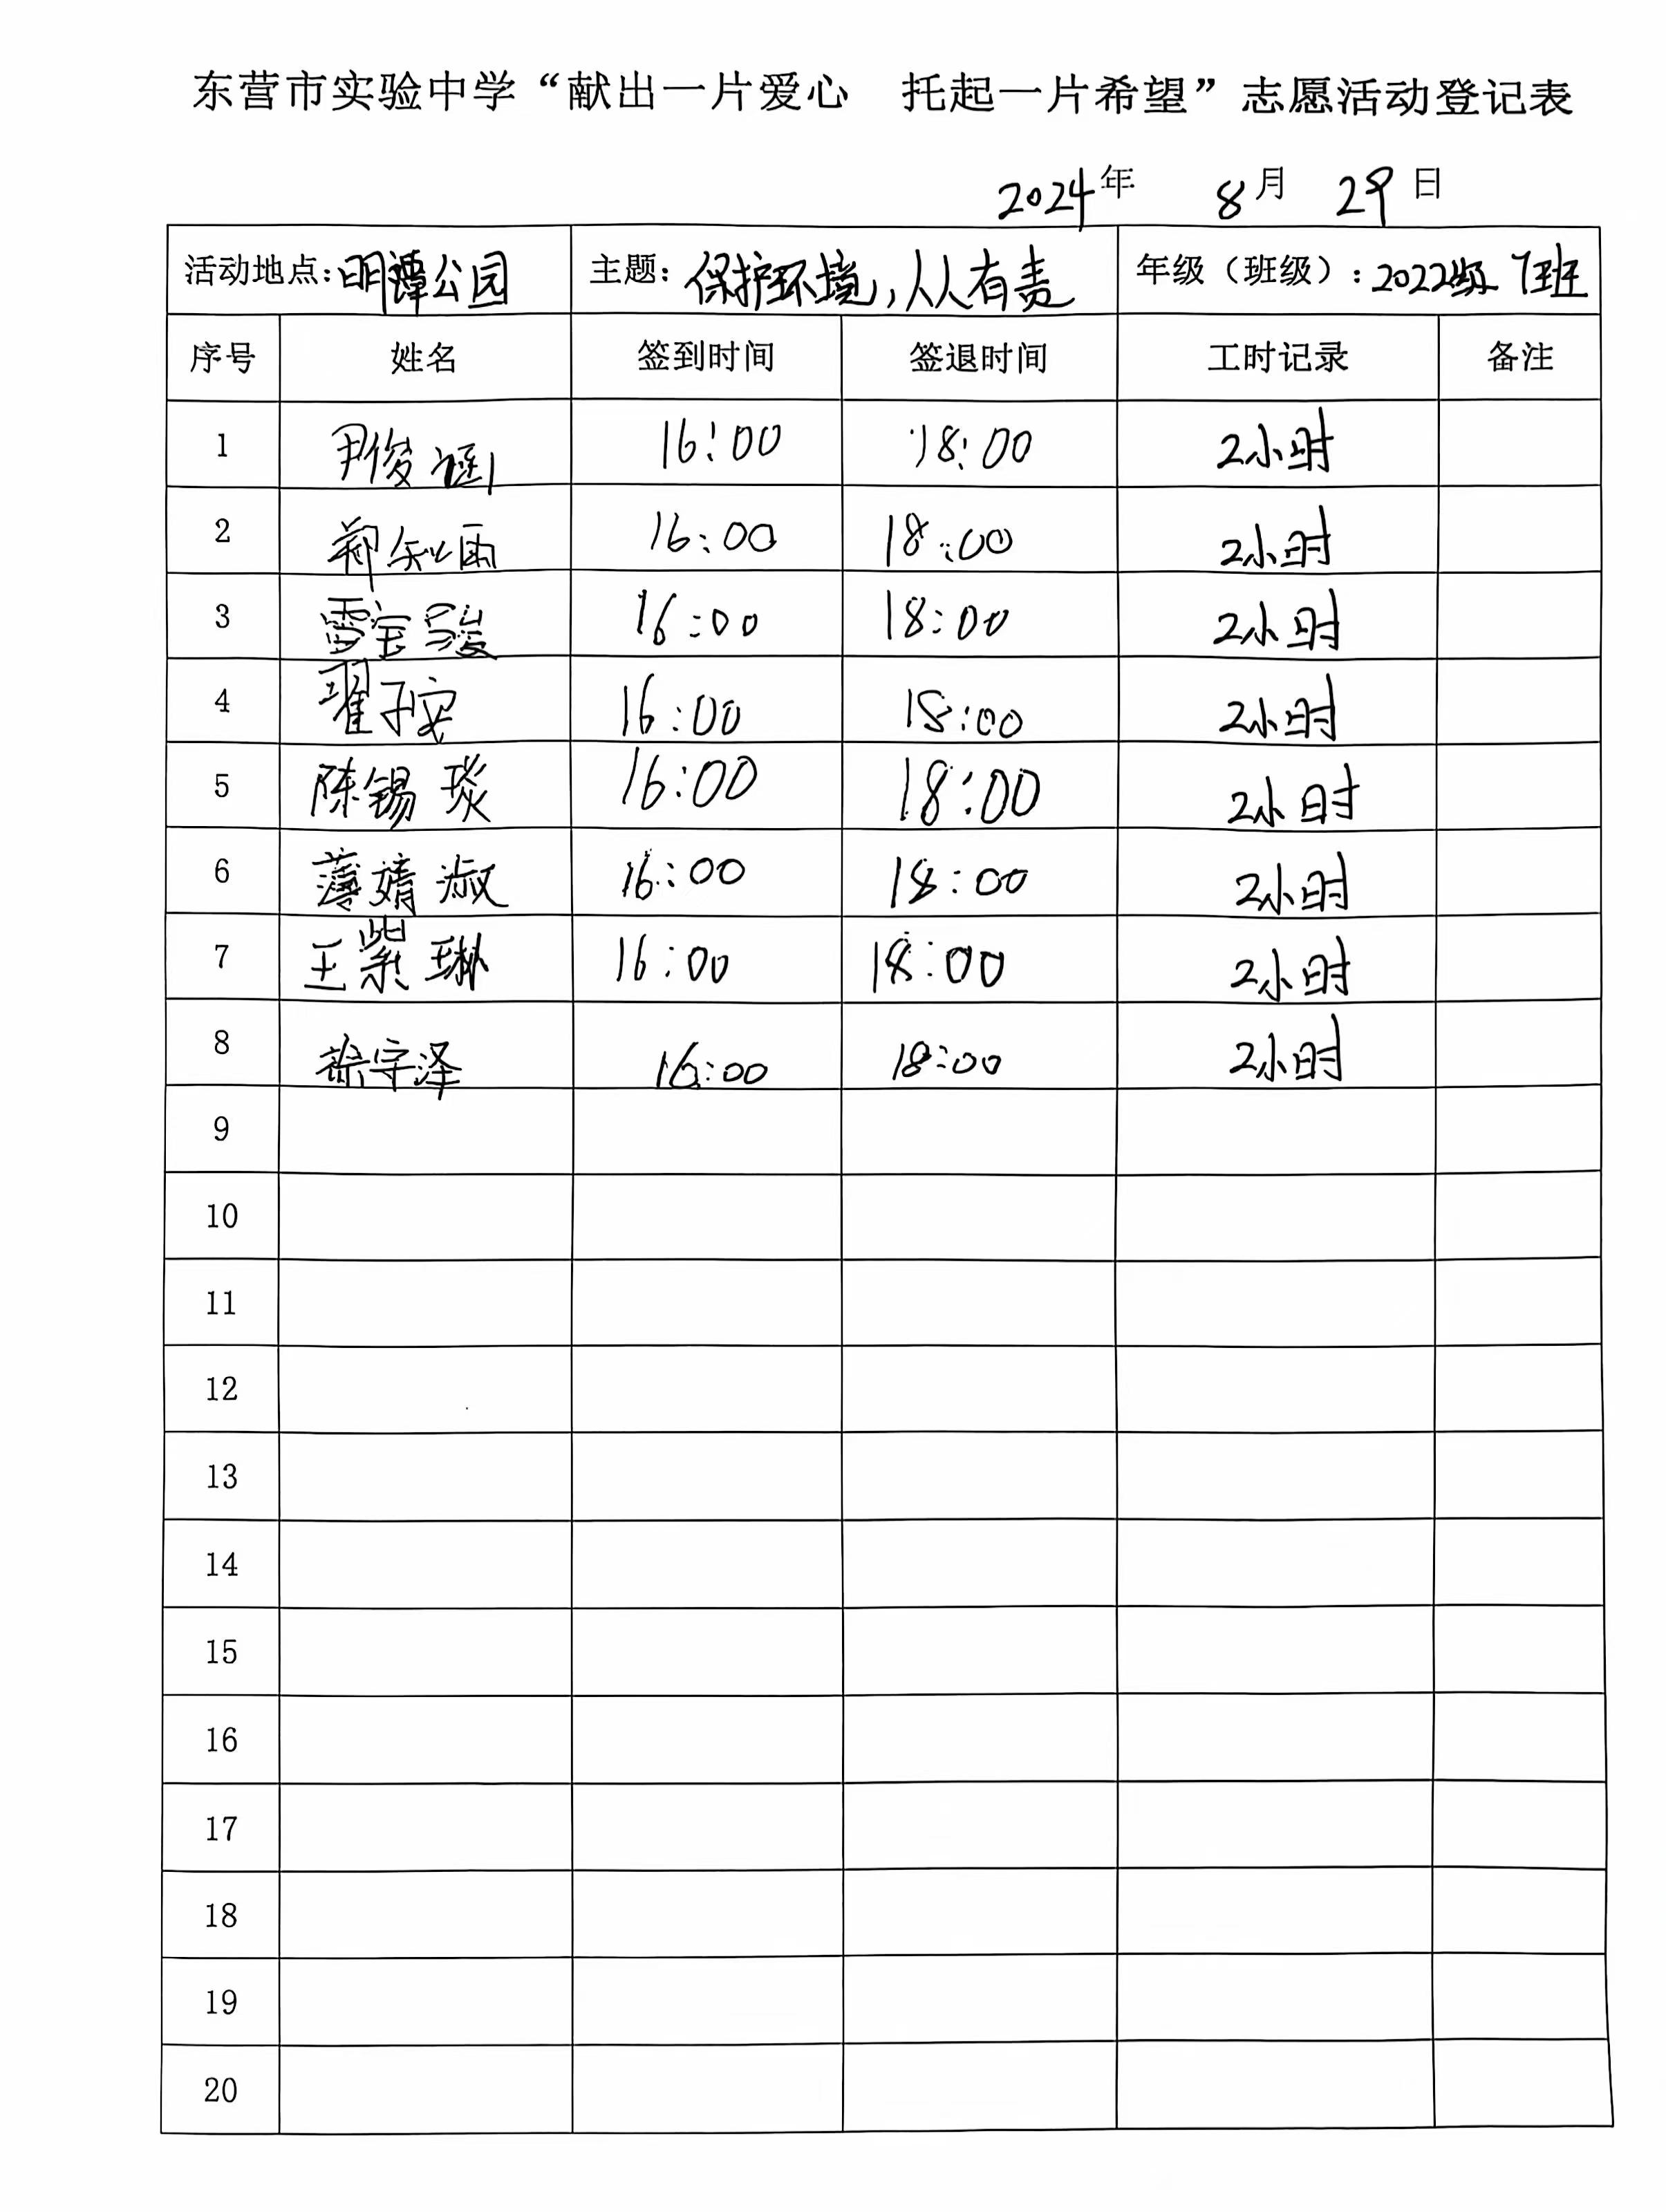 东营市实验中学“献出一片爱心 托起一片希望”志愿活动登记表
2024年 8月 29日
活动地点:明潭公园 主题:保护环境,从从有责 年级(班级):2022级 7班
序号 姓名 签到时间 签退时间 工时记录 备注
1 尹俊涵 16:00 18:00 2小时
2 郑知雨 16:00 18:00 2小时
3 雪宝骏 16:00 18:00 2小时
4 翟子安 16:00 18:00 2小时
5 陈锡琰 16:00 18:00 2小时
6 薄婧淑 16:00 18:00 2小时
7 王紫琳 16:00 18:00 2小时
8 徐宇泽 16:00 18:00 2小时
9
10
11
12
13
14
15
16
17
18
19
20